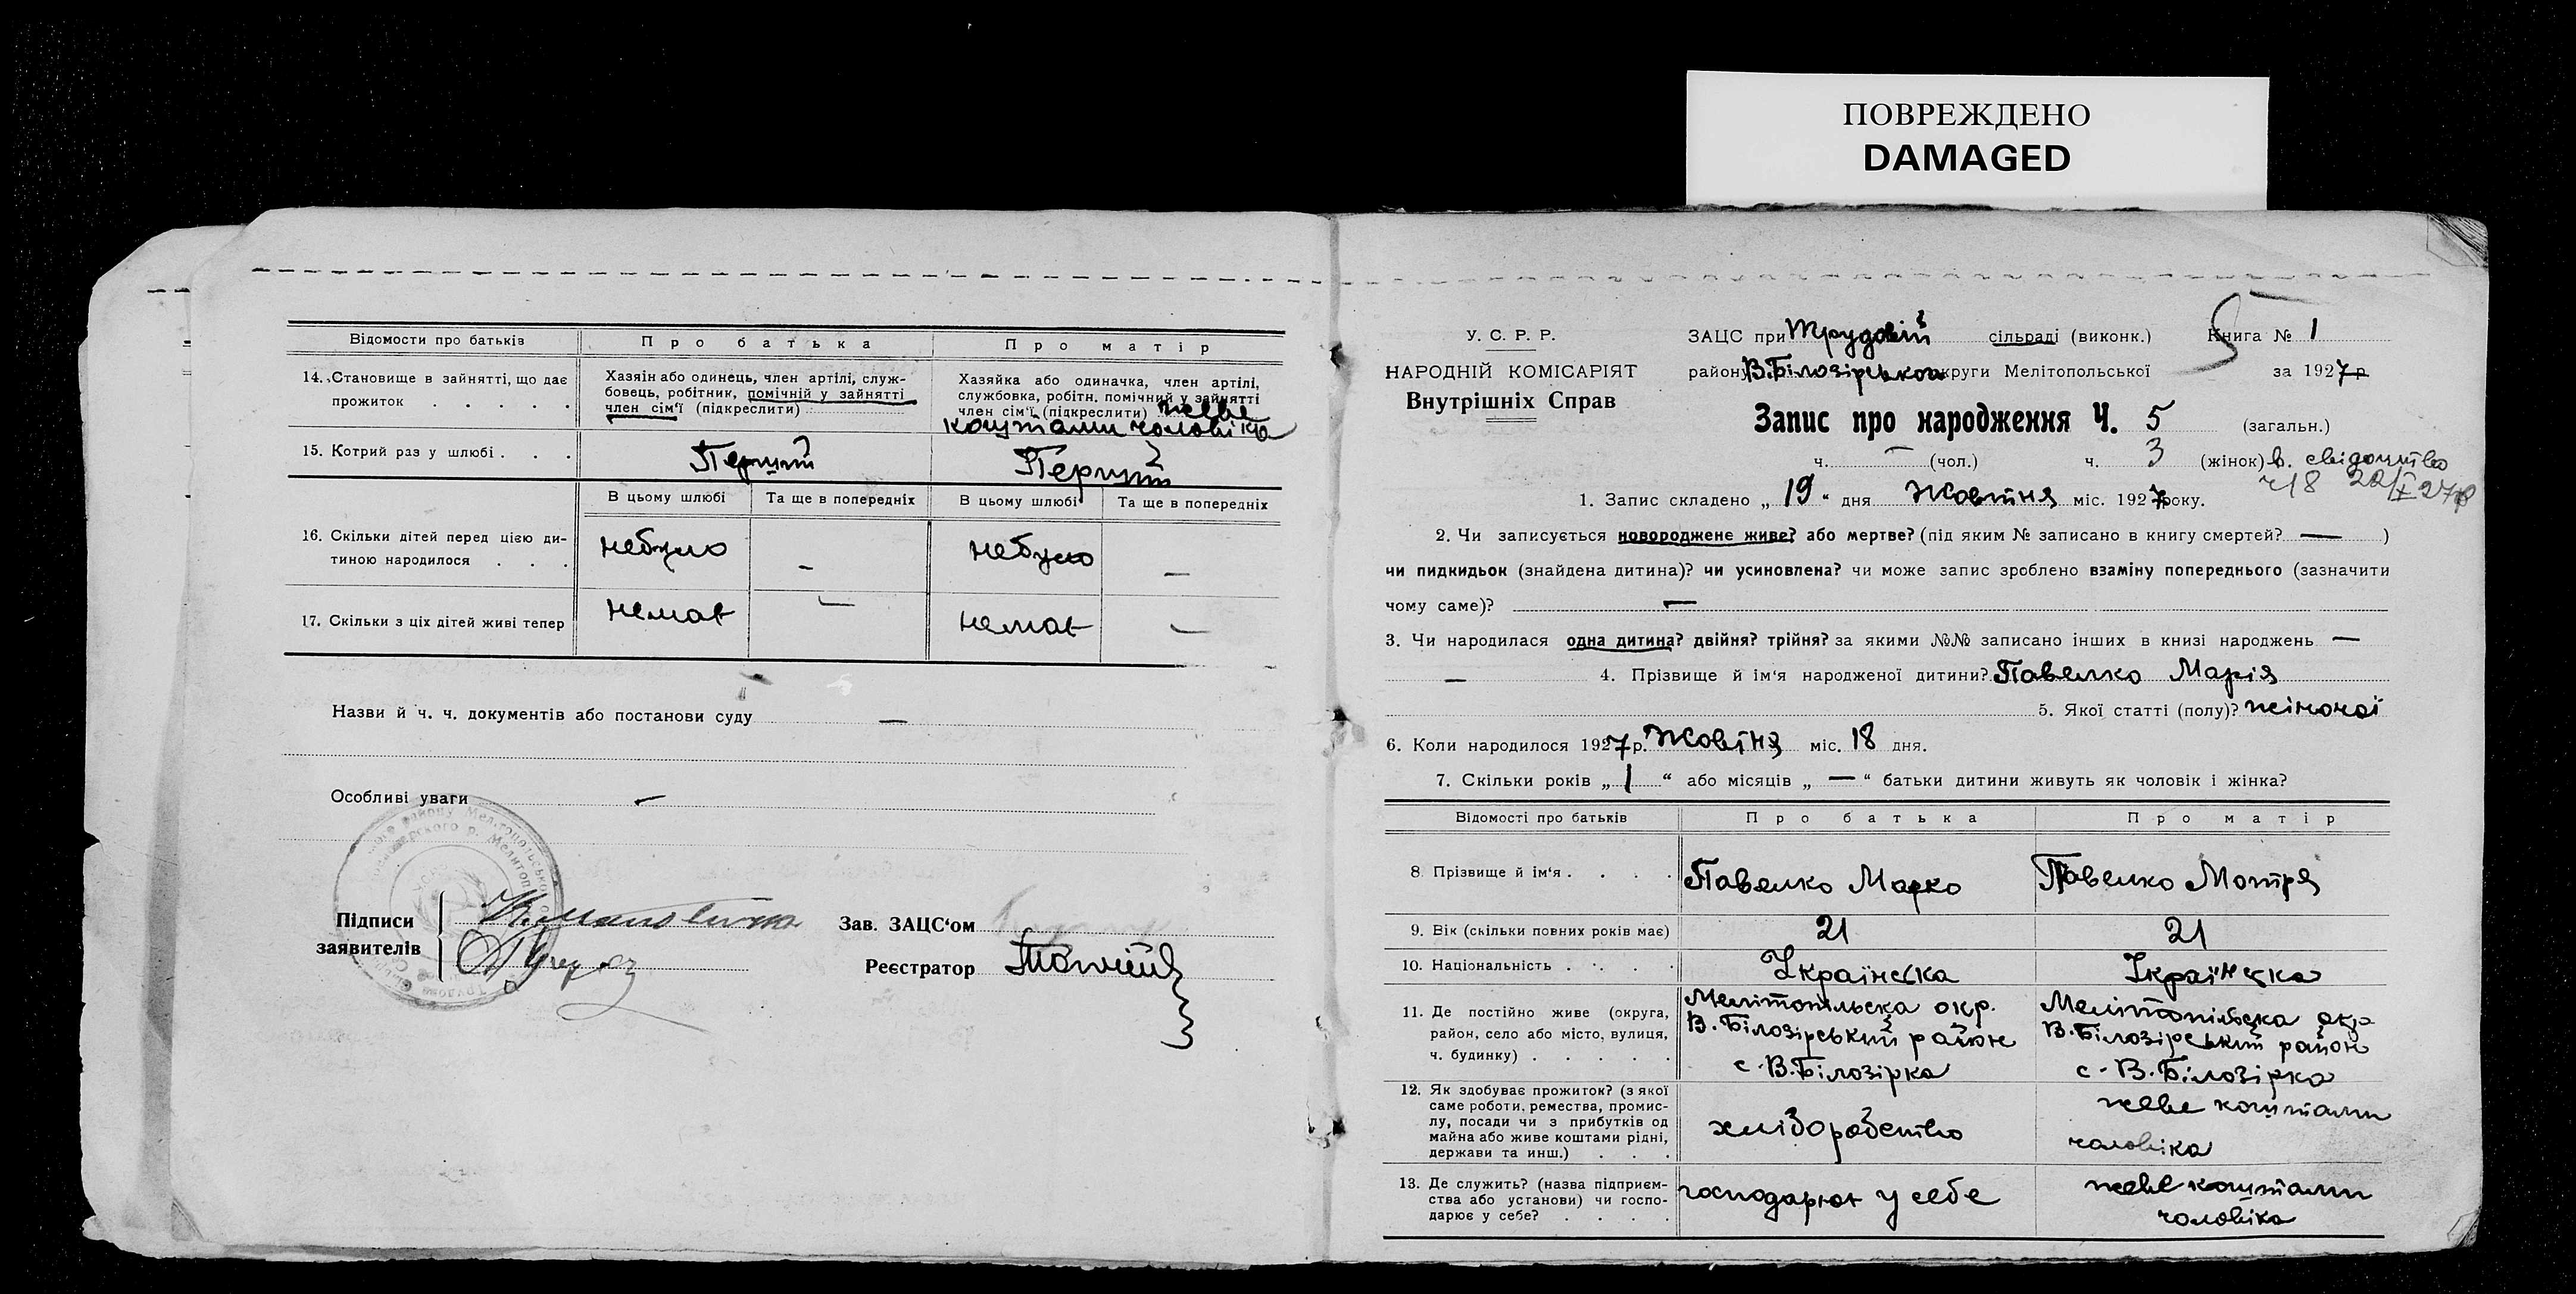 ПОВРЕЖДЕНО
DAMAGED
Відомости про батьків
Про батька
Про матір
14. Становище в зайнятті, що дає прожиток . . . . .
Хазяїн або одинець, член артілі, служ-
бовець, робітник, помічній у зайнятті
член сім'ї (підкреслити)
Хазяйка або одиначка, член артілі,
службовка, робітн. помічний у зайнятті
член сім'ї (підкреслити) живе
коштами чоловіка
15. Котрий раз у шлюбі . . .
Перший
Перший
В цьому шлюбі
Та ще в попередніх
В цьому шлюбі
Та ще в попередніх
16. Скільки дітей перед цією ди-
тиною народилося . . .
небуло
–
небуло
–
17. Скільки з ціх дітей живі тепер
немає
–
немає
–
Назви й ч. ч. документів або постанови суду –
Особливі уваги –
Підписи
заявителів
Зав. ЗАЦС'ом
Реєстратор
У. С. Р. Р.
НАРОДНІЙ КОМІСАРІЯТ
Внутрішніх Справ
ЗАЦС при Трудовій сільраді (виконк.) Книга № 1
5
району В.Білозірської округи Мелітопольської за 1927 р
Запис про народження Ч. 5 (загальн.)
ч. – (чол.) ч. 3 (жінок) в. свідоцтво
ч18 22/X 27р
1. Запис складено „19“ дня Жовтня міс. 1927 року.
2. Чи записується новороджене живе? або мертве? (під яким № записано в книгу смертей? — )
чи пидкидьок (знайдена дитина)? чи усиновлена? чи може запис зроблено взаміну попереднього (зазначити
чому саме)? —
3. Чи народилася одна дитина? двійня? трійня? за якими №№ записано інших в книзі народжень —
— 4. Прізвище й ім'я народженої дитини? Павелко Марія
5. Якої статті (полу)? жіночої
6. Коли народилося 1927 р. Жовтня міс. 18 дня.
7. Скільки років „1“ або місяців „—“ батьки дитини живуть як чоловік і жінка?
Відомості про батьків
Про батька
Про матір
8 Прізвище й ім'я . . . .
Павелко Марко
Павелко Мотря
9. Вік (скільки повних років має)
21
21
10. Національність . . . .
Українська
Українська
11. Де постійно живе (округа,
район, село або місто, вулиця,
ч. будинку) . . . . .
Мелітопільска окр.
В.Білозірський район
с. В.Білозірка
Мелітопільска окр
В.Білозірський район
с. В.Білозірка
12. Як здобуває прожиток? (з якої
саме роботи, ремества, промис-
лу, посади чи з прибутків од
майна або живе коштами рідні,
держави та инш.) . . .
хліборобство
живе коштами
чоловіка
13. Де служить? (назва підприєм-
ства або установи) чи госпо-
дарює у себе? . . . .
господарює у себе
живе коштами
чоловіка